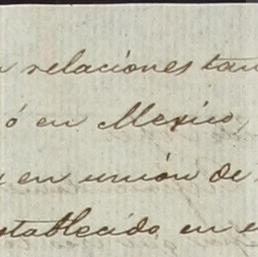 relaciones tan
ó en Mexico,
en unión de
stablecido en e